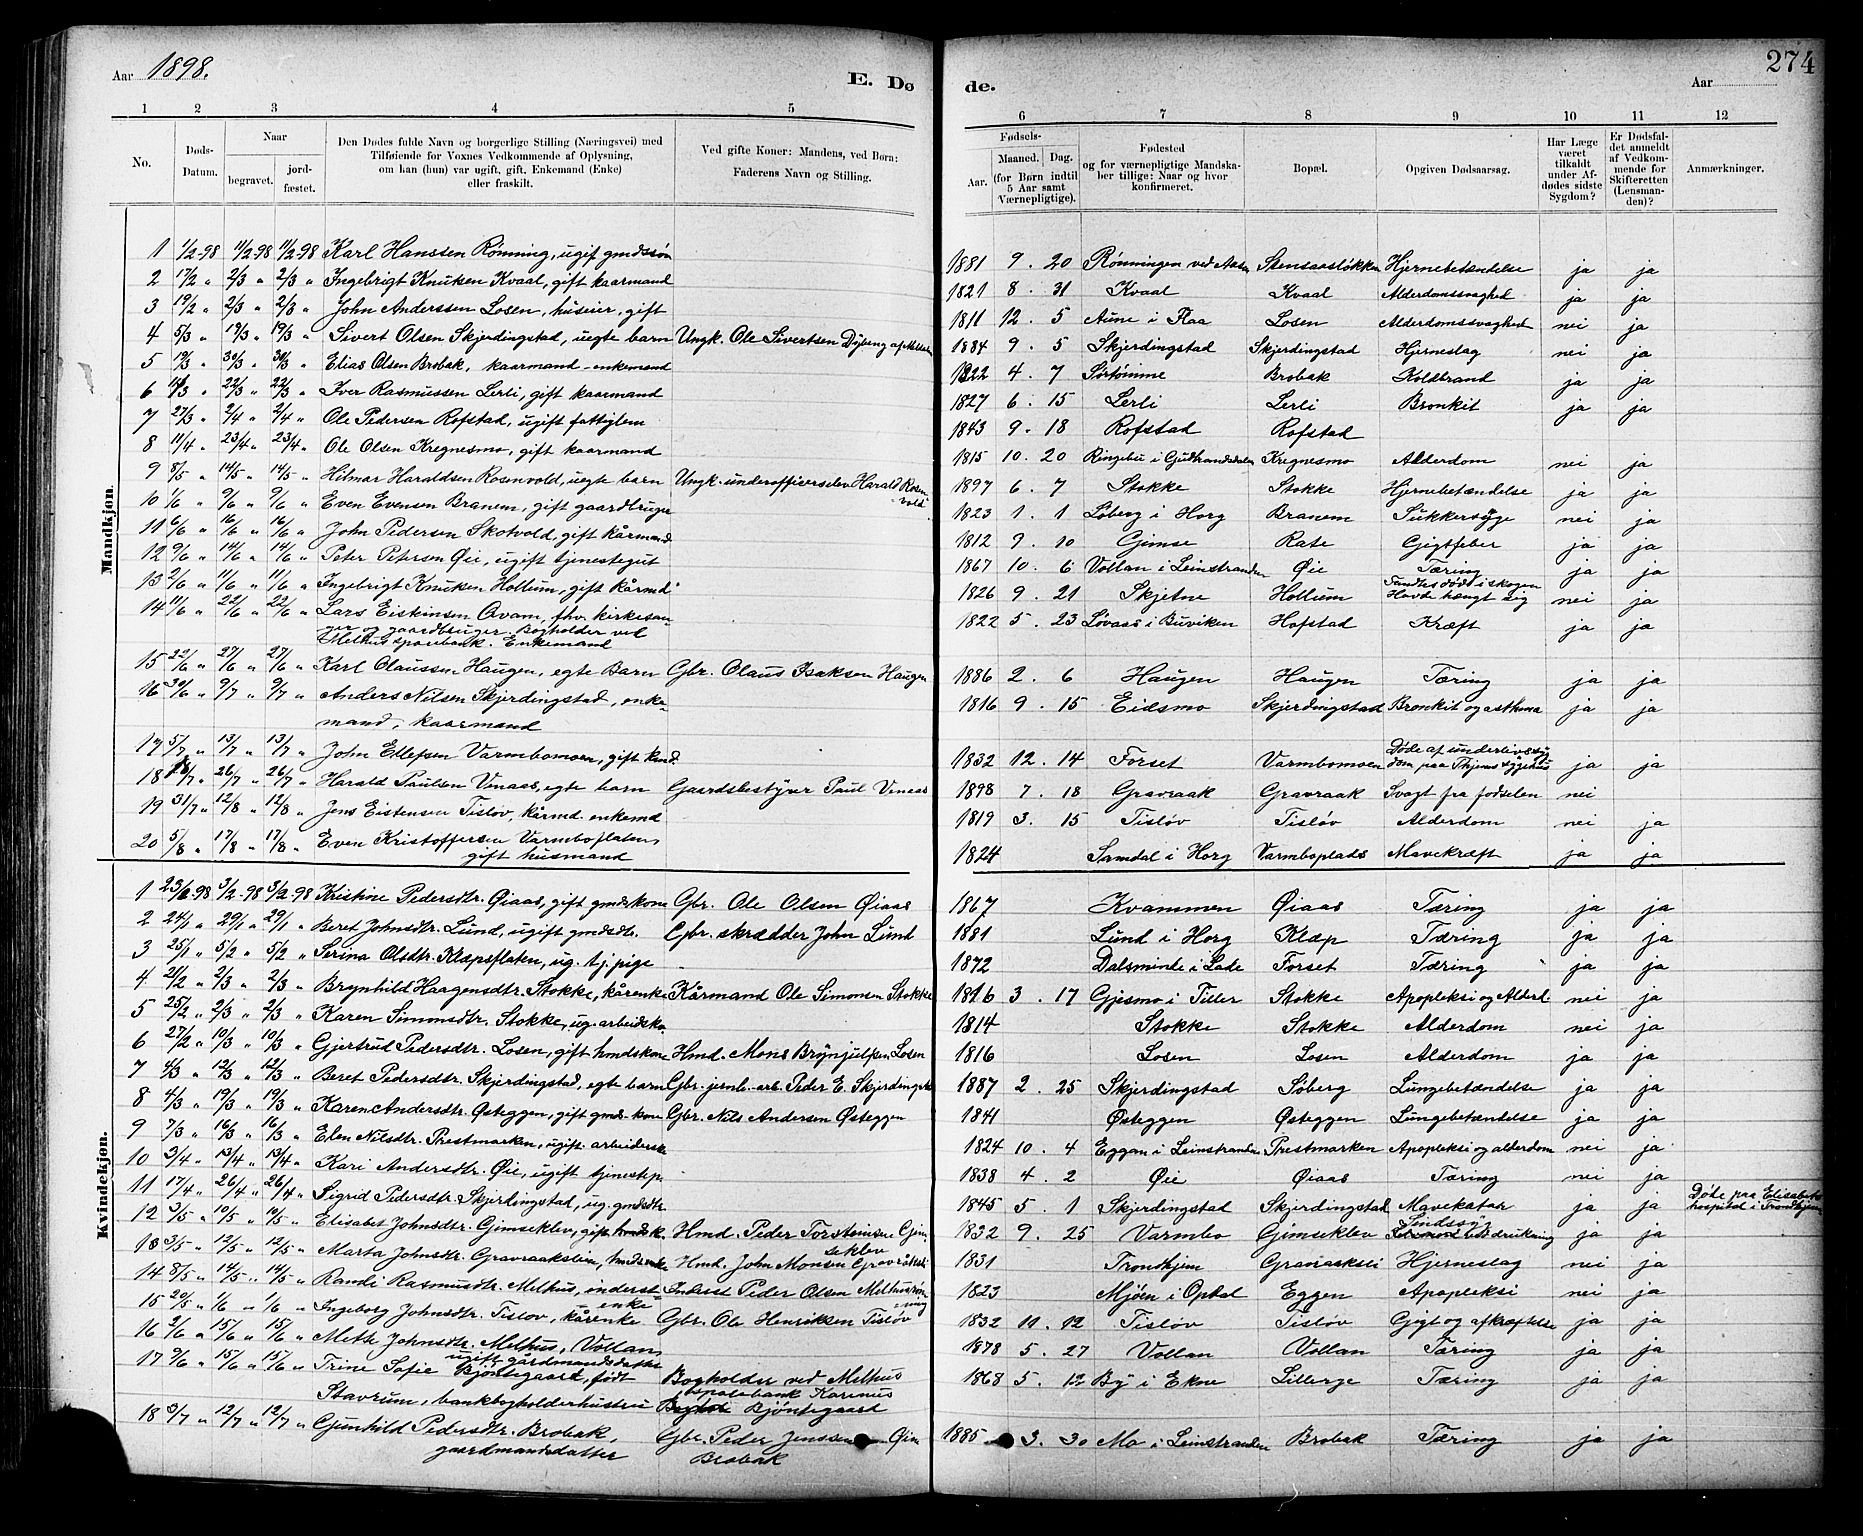 Aar 1898.
E. Dø
de.
Aar
274
1 2 3 4 5 6 7 8 9 10 11 12
No.
Døds-Datum.
Naar
begravet. jord-fæstet.
Den Dødes fulde Navn og borgerlige Stilling (Næringsvei) med
Tilføiende for Voxnes Vedkommende af Oplysning,
om han (hun) var ugift, gift, Enkemand (Enke)
eller fraskilt.
Ved gifte Koner: Mandens, ved Børn:
Faderens Navn og Stilling.
Fødsels-
Aar. Maaned. Dag.
(for Børn indtil 5 Aar samt Værnepligtige).
Fødested
og for værnepligtige Mandska-
ber tillige: Naar og hvor
konfirmeret.
Bopæl.
Opgiven Dødsaarsag.
Har Læge været tilkaldt under Af-dødes sidste Sygdom?
Er Dødsfal-det anmeldt af Vedkom-mende for Skifteretten (Lensman-den)?
Anmærkninger.
Mandkjøn.
1 1/2-98 11/2-98 11/2-98 Karl Hanssen Rönning, ugif gmdssön 1881 9. 20 Rönningen ved Aasen Stensaaslökken Hjernebetændelse ja ja
2 17/2 " 2/3 " 2/3 " Ingebrigt Knuksen Kvaal, gift kaarmand 1821 8. 31 Kvaal Kvaal Alderdomssvaghed ja ja
3 19/2 " 2/3 " 2/3 " John Anderssen Losen, huseier, gift 1811 12. 5 Aune i Flaa Losen Alderdomssvaghed nei ja
4 5/3 " 19/3 " 19/3 " Sivert Olsen Skjerdingstad, uegte barn Ungk. Ole Sivertsen 1884 9. 5 Skjerdingstad Skjerdingstad Hjerneslag nei ja
5 19/3 " 30/3 " 30/3 " Elias Olsen Brobak, kaarmand-enkemand 1822 4. 7 Sörtömme Brobak Koldbrand ja ja
6 22/3 " 22/3 " Iver Rasmussen Lerli, gift kaarmand 1827 6. 15 Lerli Lerli Bronkit ja ja
7 27/3 " 2/4 " 2/4 " Ole Pedersen Rofstad, ugift fattiglem 1843 9. 18 Rofstad Rofstad
8 11/4 " 23/4 " 23/4 Ole Olsen Kregnesmo, gift kaarmand 1815 10. 20 Ringebu i Gudbrandsdalen Kregnesmo Alderdom nei ja
9 8/5 " 14/5 " 14/5 " Hilmar Haraldsen Rosenvold, uegte barn Ungk. underofficerselev Harald Rosen-
vold 1897 6. 7 Stokke Stokke Hjernebetændelse ja ja
10 1/6 " 9/6 " 9/6 " Even Evensen Branem, gift gaardbruger 1823 1. 1 Loberg i Horg Branem Sukkersyge nei ja
11 6/6 " 16/6 " 16/6 " John Pedersen Skotvold, gift kårmand 1812 9. 10 Gimse Rate Gigtfeber ja ja
12 9/6 " 14/6 " 14/6 " Peter Petersen Øie, ugift tjenestegut 1867 10. 6 Vollan i Leinstranden Øie Tæring ja ja
13 2/6 " 11/6 " 11/6 " Ingebrigt Knuksen Hollum, gift kårmd 1826 9. 21 Skjetne Hollum Fandtes död i skogen
Havde hængt sig nei ja
14 11/6 " 22/6 " 22/6 Lars Eistinsen Qvam, fhv. kirkesan-
ger og gaardbruger. Bogholder ved
Melhus sparebank. Enkemand 1822 5. 23 Lövaas i Buviken Hofstad Kræft ja ja
15 22/6 " 27/6 " 27/6 " Karl Olaussen Haugen, egte Barn Gbr. Olaus Isaksen Haugen 1886 2. 6 Haugen Haugen Tæring ja ja
16 30/6 " 9/7 " 9/7 " Anders Nilsen Skjerdingstad, enke-
mand, kaarmand 1816 9. 15 Eidsmo Skjerdingstad Bronkit og asthma ja ja
17 5/7 " 13/7 " 13/7 " John Ellefsen Varmbomoen, gift 1832 12. 14 Forset Varmbomoen Døde af underlivssyg
dom paa Thjems sygehus ja ja
18 " 26/7 " 26/7 " Harald Paulsen Vinaas, egte barn Gaardsbestyrer Paul Vinaas 1898 7. 18 Gravraak Gravraak Svagt fra födselen nei
19 31/7 " 12/8 " 12/8 " Jens Eistensen Tislöv, kårmd. enkemd 1819 3. 15 Tislöv Tislöv Alderdom nei ja
20 5/8 " 17/8 " 17/8 " Even Kristoffersen Varmboplatsen,
gift husmand 1824 Samdal i Horg Varmboplads Mavekræft ja ja
Kvindekjøn.
1 -98 3/2-98 3/2-98 Kristine Pedersdtr. Øiaas, gift gmdskone Gbr. Ole Olsen Øiaas 1867 Kvammen Øiaas Tæring ja ja
2 24/1 " 29/1 " 29/1 " Beret Johnsdtr. Lund, ugift gmdsdtr. Gbr. skrædder John Lund 1881 Lund i Horg Klæp Tæring ja ja
3 25/1 " 5/2 " 5/2 " Serina Olsdtr. Klæpsflaten, ug. tj. pige 1872 Dalsminde i Lade Forset Tæring ja ja
4 21/2 " 2/3 " 2/3 " Brynhild Haagensdtr. Stokke, kårenke Kårmand Ole Simonsen Stokke 1816 3. 17 Gjesmo i Tiller Stokke Apopleksi og Alderd. nei ja
5 25/2 " 2/3 " 2/3 " Karen Simonsdtr. Stokke, ug. arbeidsko. 1814 Stokke Stokke Alderdom nei ja
6 27/2 " 10/3 " 10/3 " Gjertrud Pedersdtr. Losen, gift hmdskone Hmd. Mons Brynjulfsen Losen 1816 Losen Losen Alderdom ja ja
7 4/3 " 12/3 " 12/3 " Beret Pedersdtr. Skjerdingstad, egte barn Gbr. jernb.-arb. Peder E. Skjerdingstad 1887 2. 25 Skjerdingstad Söberg Lungebetændelse ja ja
8 4/3 " 19/3 " 19/3 " Karen Andersdtr. Østeggen, gift gmds-kone Gbr. Nils Andersen Østeggen 1841 Østeggen Østeggen Lungebetændelse ja ja
9 7/3 " 16/3 " 16/3 " Elen Nilsdtr. Prestmarken, ugift arbeiderske 1824 10. 4 Eggan i Leinstranden Prestmarken Apopleksi og alderdom nei ja
10 3/4 " 13/4 " 13/4 " Kari Andersdtr. Øie, ugift tjenestep. 1838 4. 2 Øie Øiaas Tæring nei ja
11 17/4 " 26/4 " 26/4 " Sigrid Pedersdtr. Skjerdingstad, ug. gmdsdtr. 1845 5. 1 Skjerdingstad Skjerdingstad Mavekatar ja ja Döde paa Elisabets
hospital i Trondhjem
12 3/5 " 10/5 " 10/5 " Elisabet Johnsdtr. Gimseklev, gift hmdsk. Hmd. Peder Torsteinsen Gim-
seklev 1832 9. 25 Varmbo Gimseklev Sindssyg ja ja
13 3/5 " 12/5 " 12/5 " Marta Johnsdtr. Gravraakslien, hmdsenke Hmd. John Monsen 1831 Trondhjem Gravraaksli Hjerneslag nei ja
14 8/5 " 14/5 " 14/5 " Randi Rasmusdtr. Melhus, inderst
enke Inderst Peder Olsen Melhusrön-
ning 1823 Mjöen i Opdal Eggen Apopleksi nei ja
15 20/5 " 1/6 " 1/6 " Ingeborg Johnsdtr. Tislov, kårenke Gbr. Ole Henriksen Tislöv 1832 11. 12 Tislöv Tislöv Gigt og afkræftelse ja ja
16 2/6 " 15/6 " 15/6 " Meth Johnsdtr. Melhus, Vollan,
ugift gårdmandsdatter 1878 5. 27 Vollan Vollan Tæring ja ja
17 9/6 " 15/6 " 15/6 " Trine Sofie Bjöntegaard, födt
Stavrum, bankbogholderhustru Bogholder ved Melhus
sparebank Karenus
Bjöntegaard 1868 5. 12 By i Ekne Lillerge Tæring ja ja
18 3/7 " 12/7 " 12/7 " Gunhild Pedersdtr. Brobak,
gaardmandsdatter Gbr. Peder Jenssen
Brobak 1885 3. 30 Mo i Leinstranden Brobak Tæring ja ja